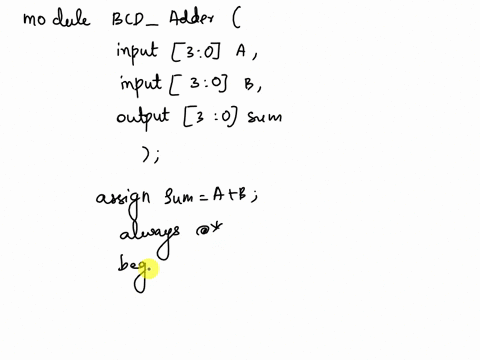 module BCD_Adder (
input [3:0] A,
input [3:0] B,
output [3:0] sum
);
assign sum = A+B;
always @*
beg.